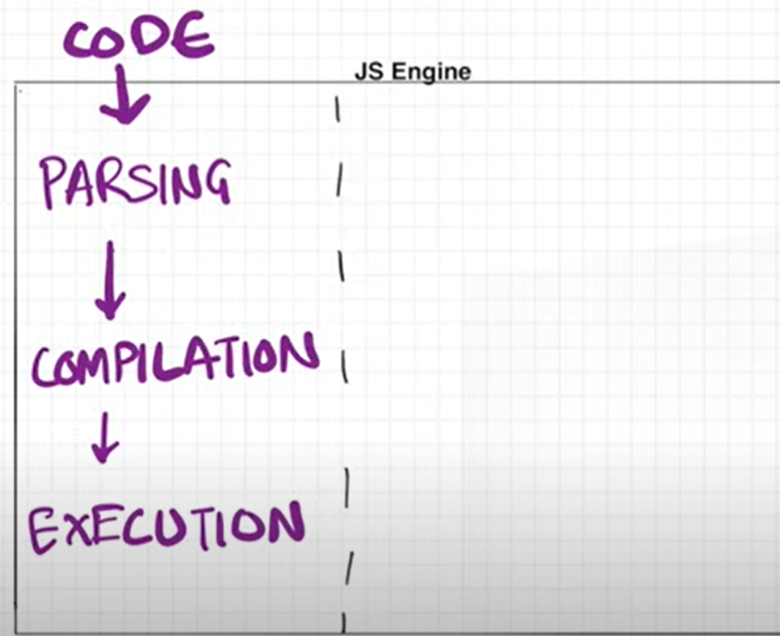 CODE
JS Engine
PARSING
COMPILATION
EXECUTION